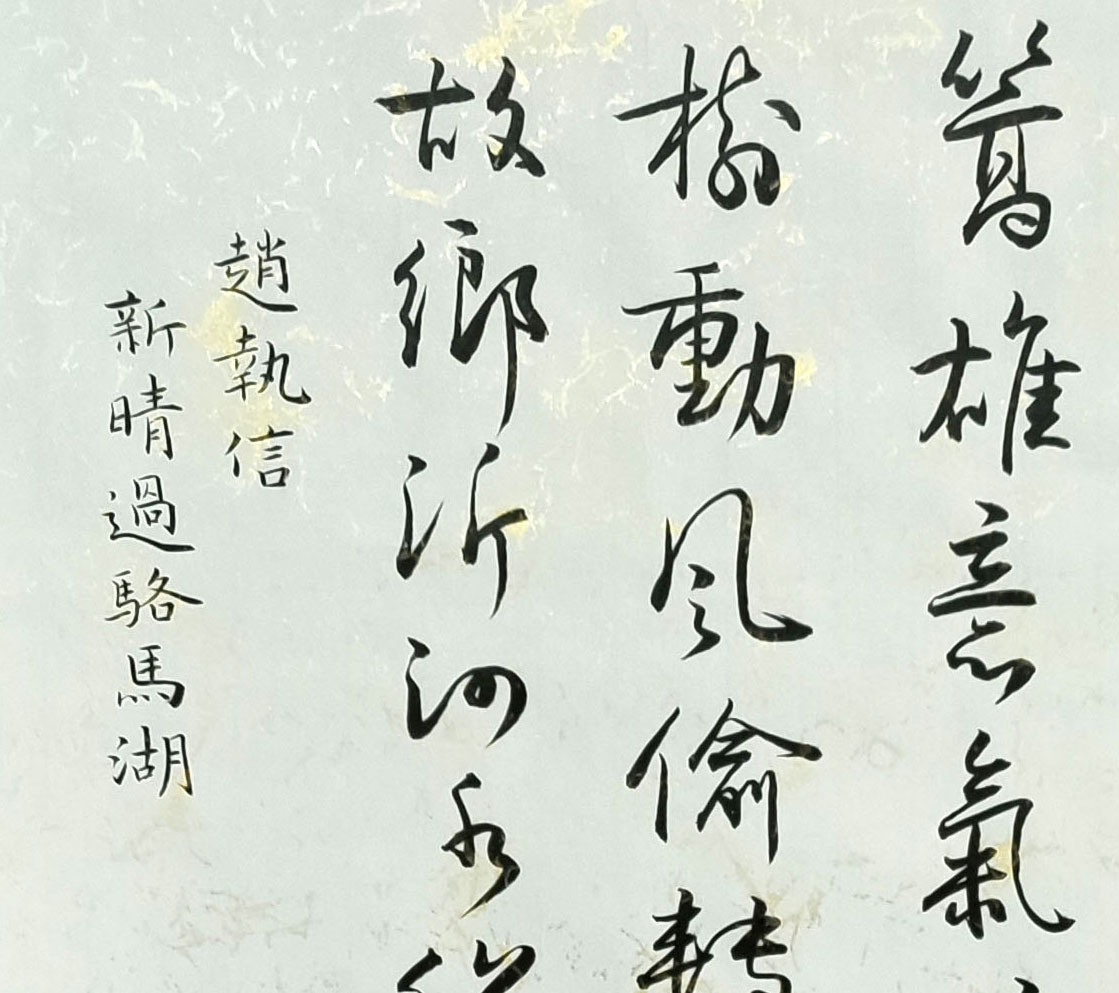 篙雄意氣
動風偷轉
故鄉沂泗水
趙執信
新晴過駱馬湖